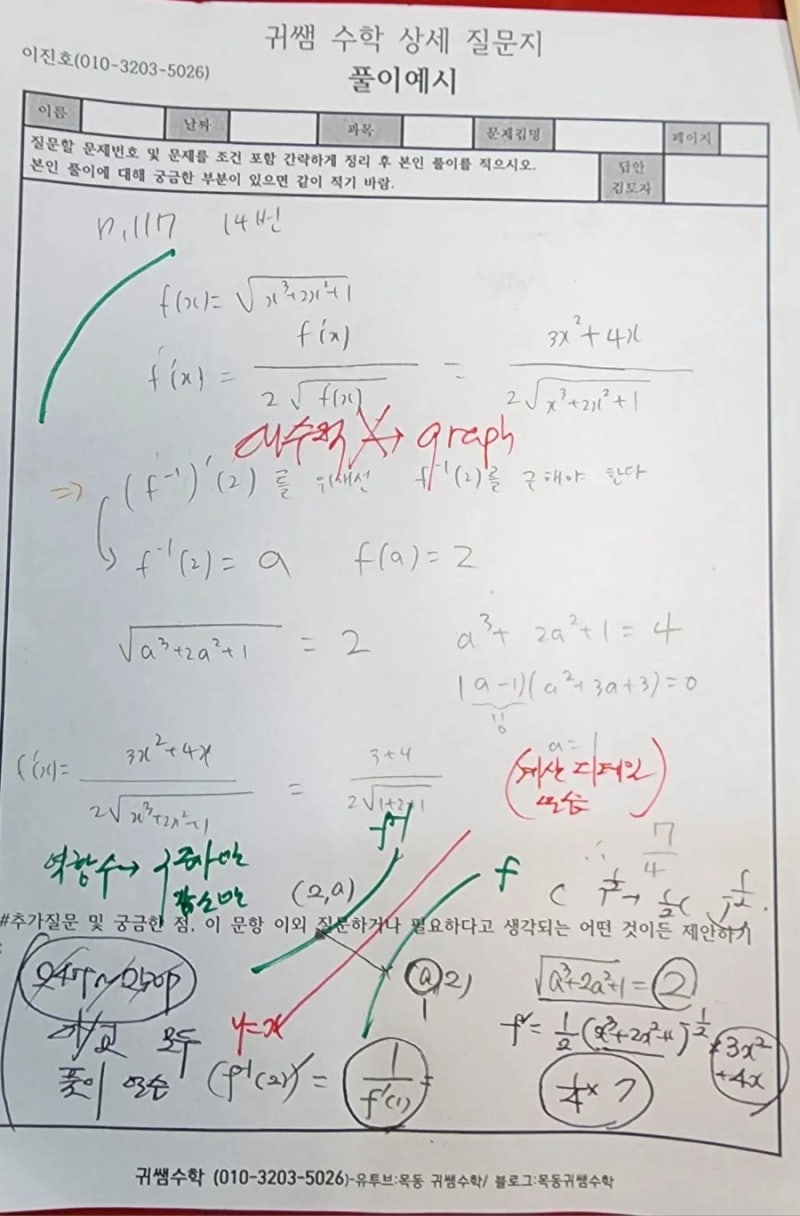 귀쌤 수학 상세 질문지
이진호(010-3203-5026)
풀이예시
이름 날짜 과목 문제집명 페이지
질문할 문제번호 및 문제를 조건 포함 간략하게 정리 후 본인 풀이를 적으시오.
본인 풀이에 대해 궁금한 부분이 있으면 같이 적기 바람.
답안
검토자
p.117 14번
f(x)= √(x³+2x²+1)
f'(x) = f'(x) / 2√f(x) = 3x²+4x / 2√(x³+2x²+1)
대수적 X → graph
⇒ (f⁻¹)'(2) 를 위해선 f⁻¹(2)를 구해야 한다
f⁻¹(2) = a f(a) = 2
√(a³+2a²+1) = 2 a³+ 2a²+1 = 4
(a-1)(a²+3a+3)=0
a=1
f'(x)= 3x²+4x / 2√(x³+2x²+1) = 3+4 / 2√(1+2+1)
(계산 디테일
연습)
∴ 7/4
f⁻¹
역함수→ 증가만
감소만
(2,a)
f
( )^½ → ½( )^-½.
#추가질문 및 궁금한 점, 이 문항 이외 질문하거나 필요하다고 생각되는 어떤 것이든 제안하기
(a, 2)
1
√(a³+2a²+1) = 2
y=x
모두
풀이 연습
f' = ½(x³+2x²+1)^-½ × 3x²+4x
(f⁻¹(2))' = 1/f'(1) =
¼ × 7
귀쌤수학 (010-3203-5026)-유투브:목동 귀쌤수학/ 블로그:목동귀쌤수학